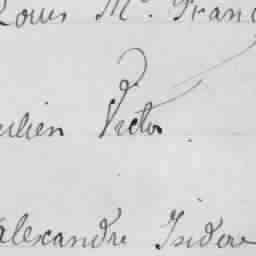 Louis M. Franc
ulien Victor
alexandre Isidore